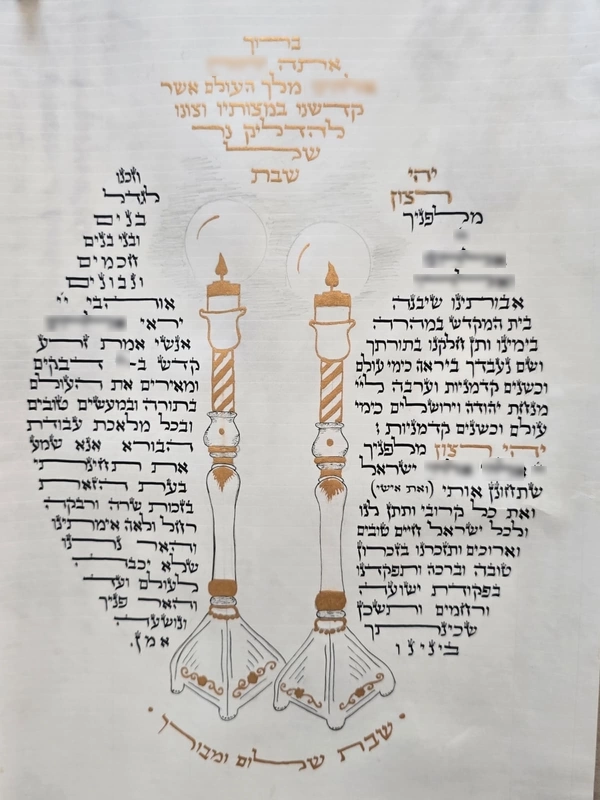 ברוך
אתה
מלך העולם אשר
קדשנו במצותיו וצונו
להדליק נר
של
שבת
יהי
רצון
מלפניך
אבותינו שיבנה
בית המקדש במהרה
בימינו ותן חלקנו בתורתך
ושם נעבדך ביראה כימי עולם
וכשנים קדמניות וערבה ליי
מנחת יהודה וירושלים כימי
עולם וכשנים קדמניות:
יהי רצון מלפניך
ישראל
שתחונן אותי (ואת אישי)
ואת כל קרובי ותתן לנו
ולכל ישראל חיים טובים
וארוכים ותזכרנו בזכרון
טובה וברכה ותפקדנו
בפקודת ישועה
ורחמים ותשכן
שכינתך
בינינו
וזכנו
לגדל
בנים
ובני בנים
חכמים
ונבונים
אוהבי יי
יראי
אנשי אמת זרע
קדש ב- דבקים
ומאירים את העולם
בתורה ובמעשים טובים
ובכל מלאכת עבודת
הבורא אנא שמע
את תחינתי
בעת הזאת
בזכות שרה ורבקה
רחל ולאה אימותינו
והאר נרנו
שלא יכבה
לעולם ועד
והאר פניך
ונושעה
אמן.
שבת שלום ומבורך